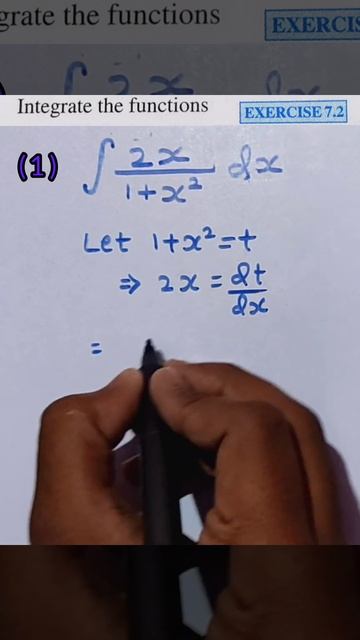 grate the functions EXERCIS
∫ 2x dx
Integrate the functions EXERCISE 7.2
(1) ∫ 2x/1+x² dx
Let 1+x²=t
⇒ 2x = dt/dx
=